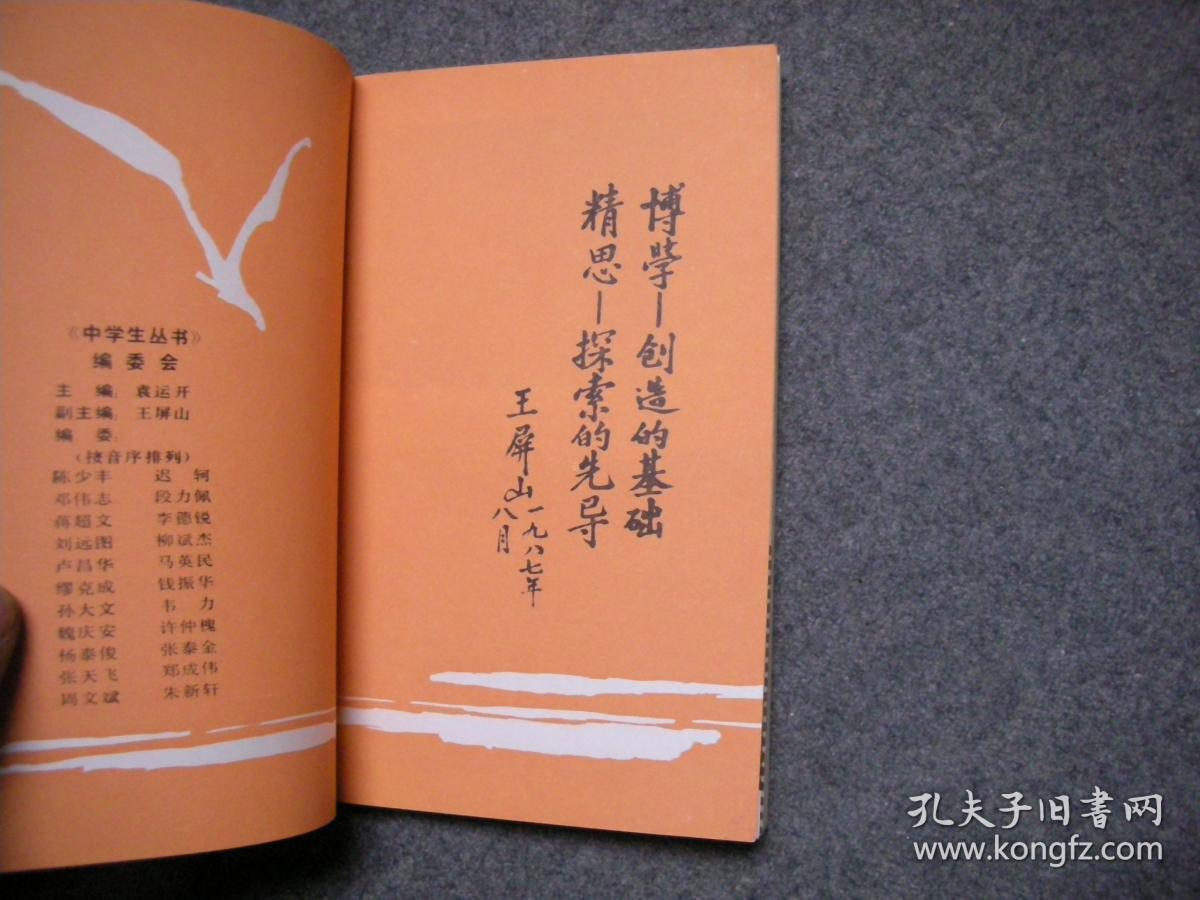 《中学生丛书》
编委会
主 编：袁运开
副主编：王屏山
编 委：
（按音序排列）
陈少丰 迟轲
邓伟志 段力佩
蒋超文 李德锐
刘远图 柳斌杰
卢昌华 马英民
缪克成 钱振华
孙大文 韦力
魏庆安 许仲槐
杨泰俊 张泰金
张天飞 郑成伟
周文斌 朱新轩
博學—创造的基础
精思—探索的先导
王屏山一九八七年
八月
孔夫子旧書网
www.kongfz.com